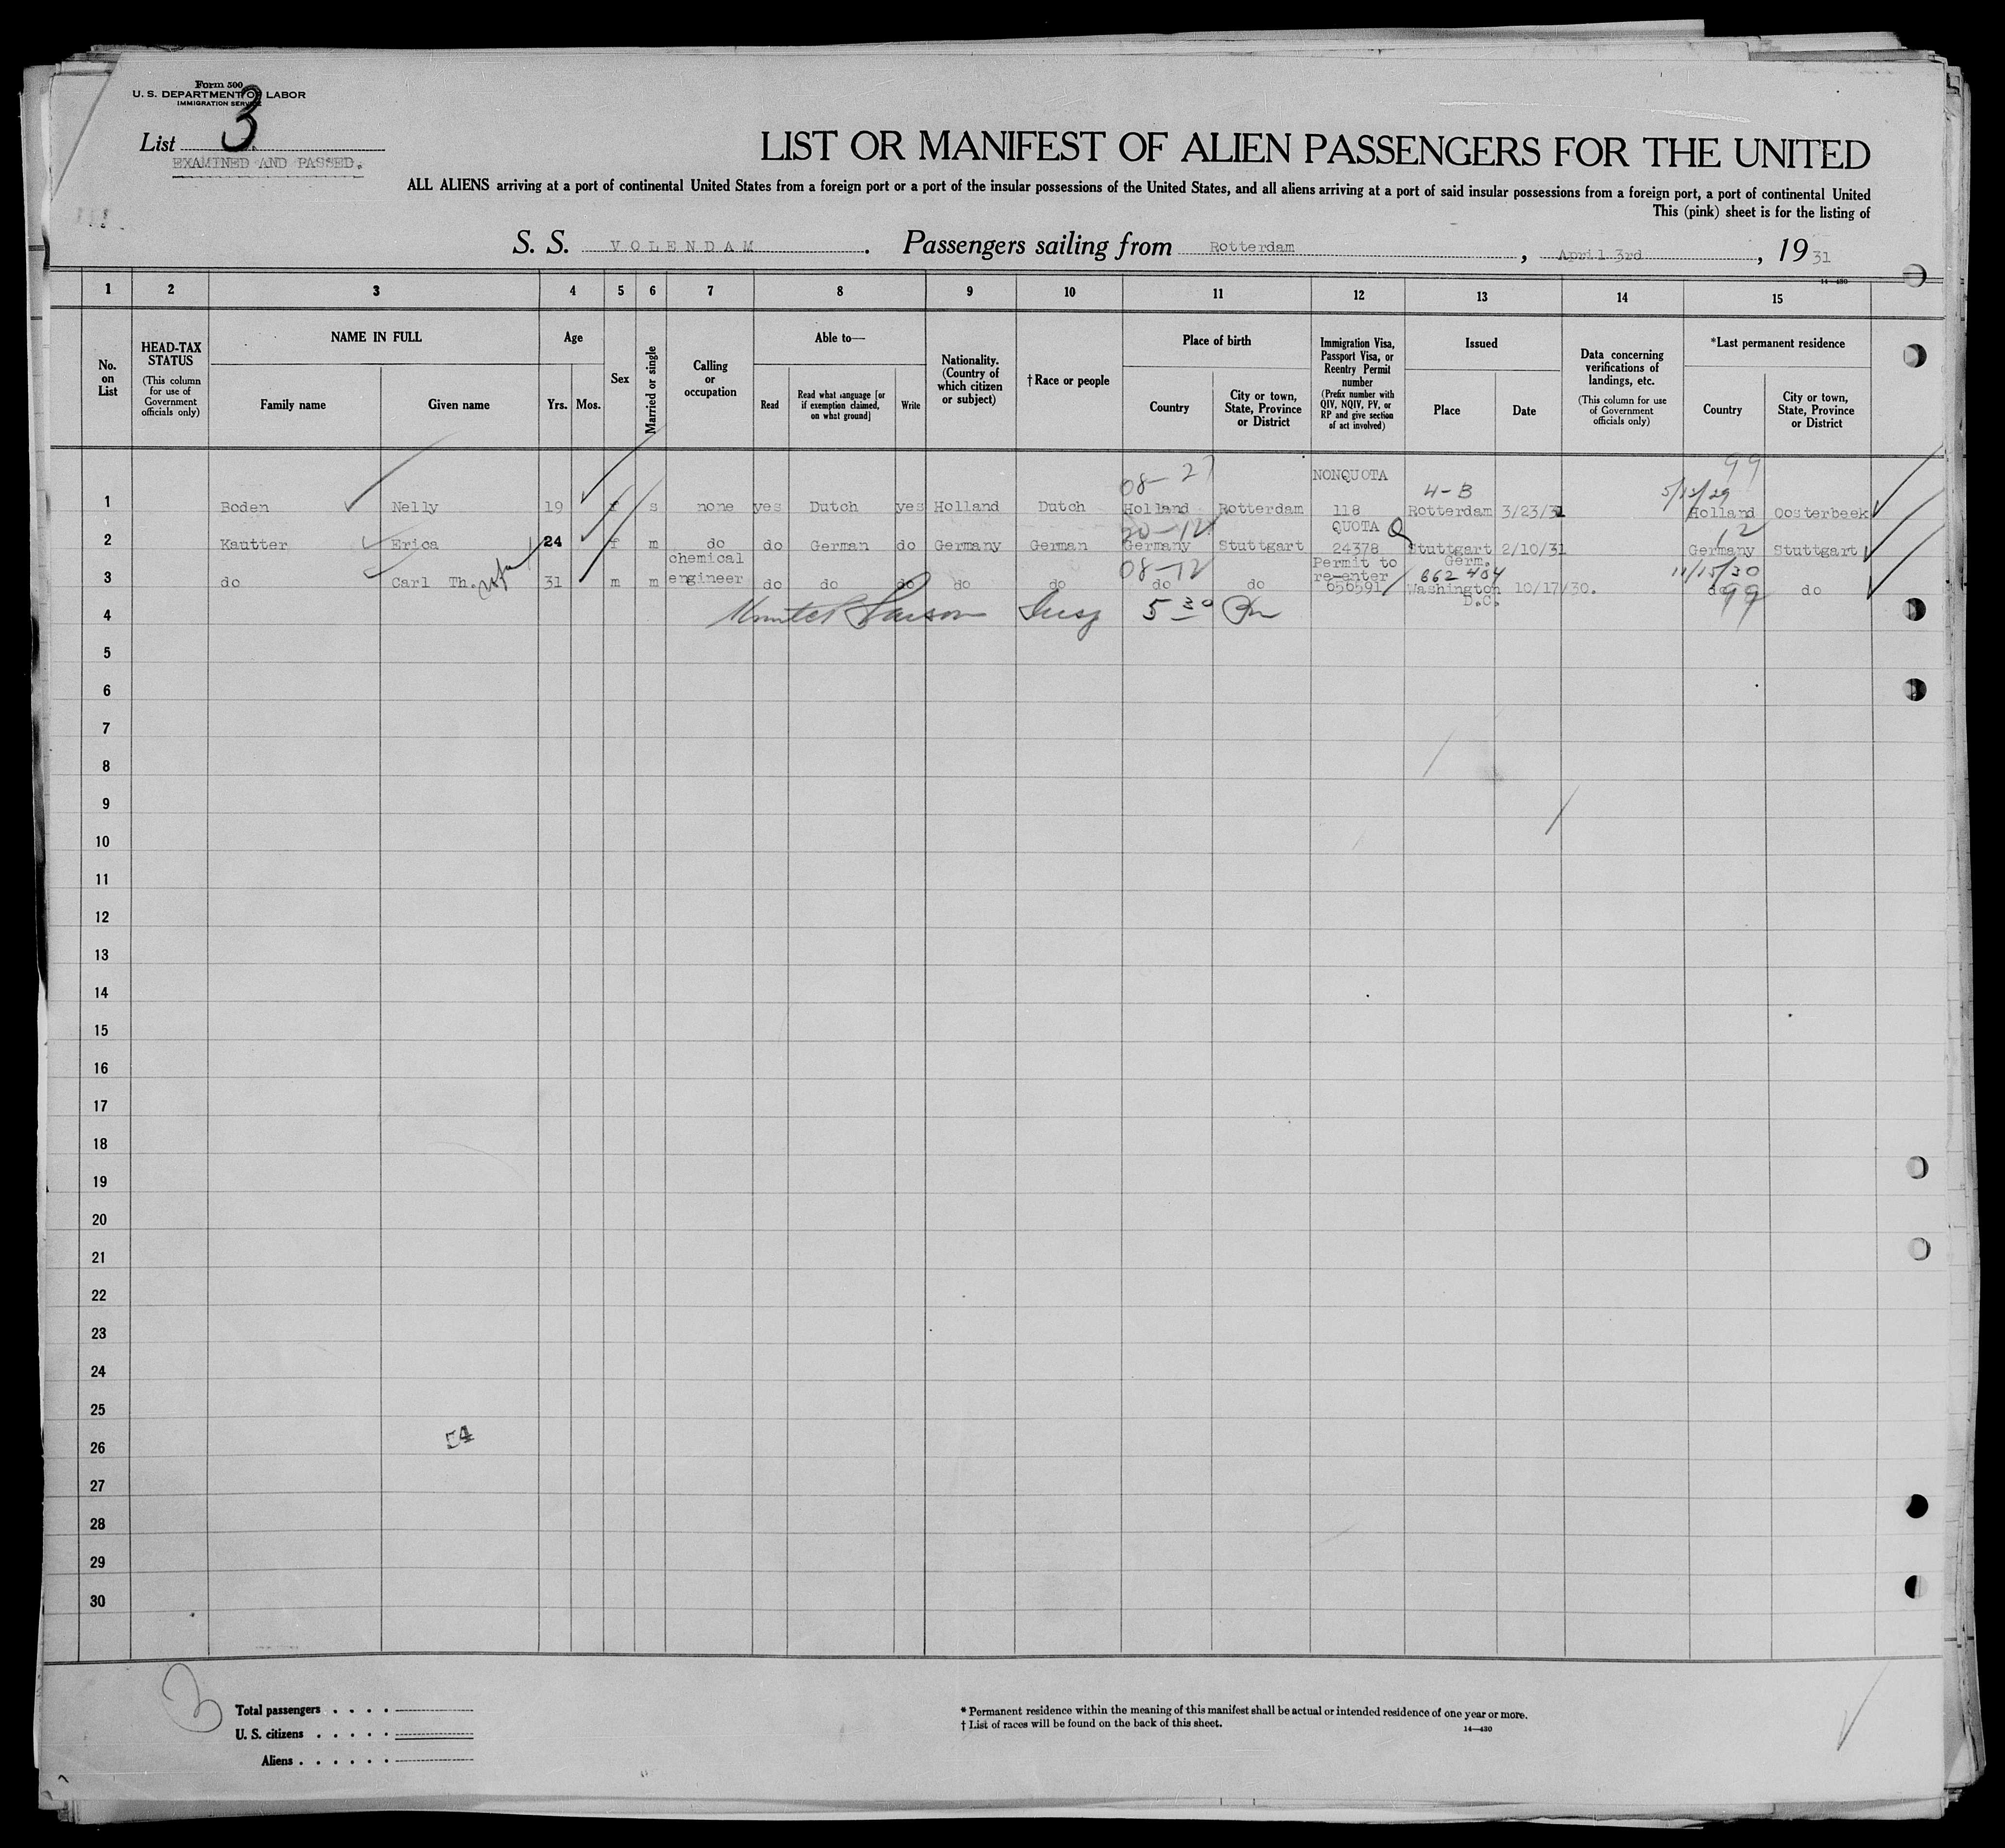 Form 500
U. S. DEPARTMENT OF LABOR
IMMIGRATION SERVICE
List 3
EXAMINED AND PASSED.
LIST OR MANIFEST OF ALIEN PASSENGERS FOR THE UNITED
ALL ALIENS arriving at a port of continental United States from a foreign port or a port of the insular possessions of the United States, and all aliens arriving at a port of said insular possessions from a foreign port, a port of continental United
This (pink) sheet is for the listing of
S. S. VOLENDAM. Passengers sailing from Rotterdam, April 3rd, 1931
14—430
1 2 3 4 5 6 7 8 9 10 11 12 13 14 15
No. on List
HEAD-TAX STATUS
(This column for use of Government officials only)
NAME IN FULL
Family name Given name
Age
Yrs. Mos.
Sex
Married or single
Calling or occupation
Able to—
Read
Read what language [or if exemption claimed, on what ground]
Write
Nationality. (Country of which citizen or subject)
†Race or people
Place of birth
Country
City or town, State, Province or District
Immigration Visa, Passport Visa, or Reentry Permit number
(Prefix number with QIV, NQIV, PV, or RP and give section of act involved)
Issued
Place Date
Data concerning verifications of landings, etc.
(This column for use of Government officials only)
*Last permanent residence
Country
City or town, State, Province or District
08-27 NONQUOTA 4-B 5/12/29 99
1 Boden Nelly 19 f s none yes Dutch yes Holland Dutch Holland Rotterdam 118 Rotterdam 3/23/31 Holland Oosterbeek
20-12 QUOTA Q 12
2 Kautter Erica 24 f m do do German do Germany German Germany Stuttgart 24378 Stuttgart 2/10/31 Germany Stuttgart
Germ.
08-12 Permit to re-enter 662 404 11/15/30
3 do Carl Th. 31 m m chemical engineer do do do do do do do 656591 Washington D.C. 10/17/30. do 99 do
4 Larson Insp 5 30 Pm
5
6
7
8
9
10
11
12
13
14
15
16
17
18
19
20
21
22
23
24
25
54
26
27
28
29
30
3
Total passengers
U. S. citizens
Aliens
* Permanent residence within the meaning of this manifest shall be actual or intended residence of one year or more.
† List of races will be found on the back of this sheet.
14—430